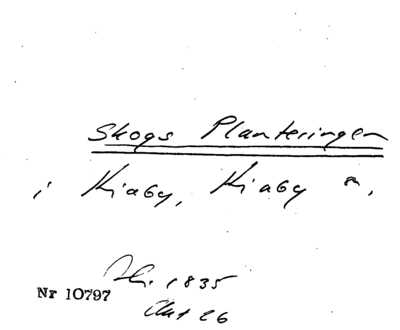 Skogs Planteringen
i Kiaby, Kiaby sn.
1835
Nr 10797
Akt 26